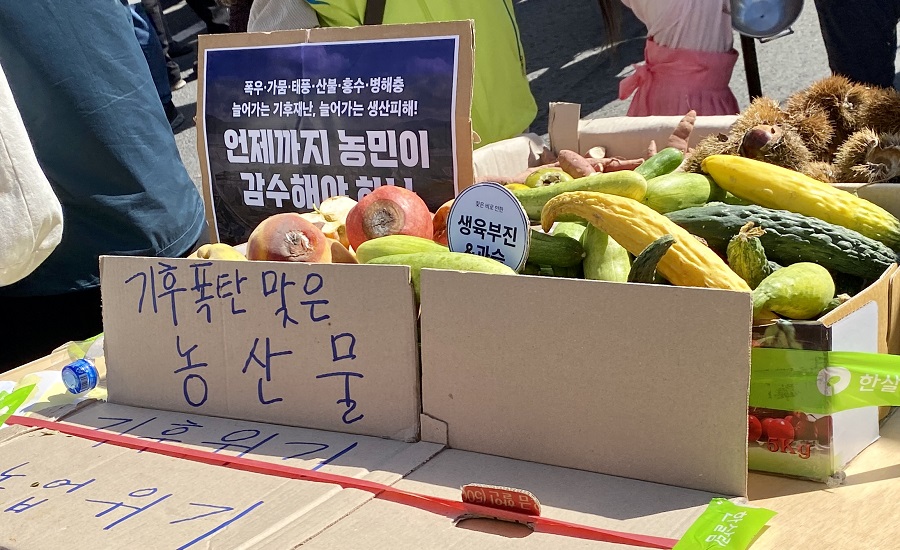 폭우·가뭄·태풍·산불·홍수·병해충
늘어가는 기후재난, 늘어가는 생산피해!
언제까지 농민이
감수해야
생육부진
기후폭탄 맞은
농산물
한실
5Kg
기후위기
농업위기
한살림